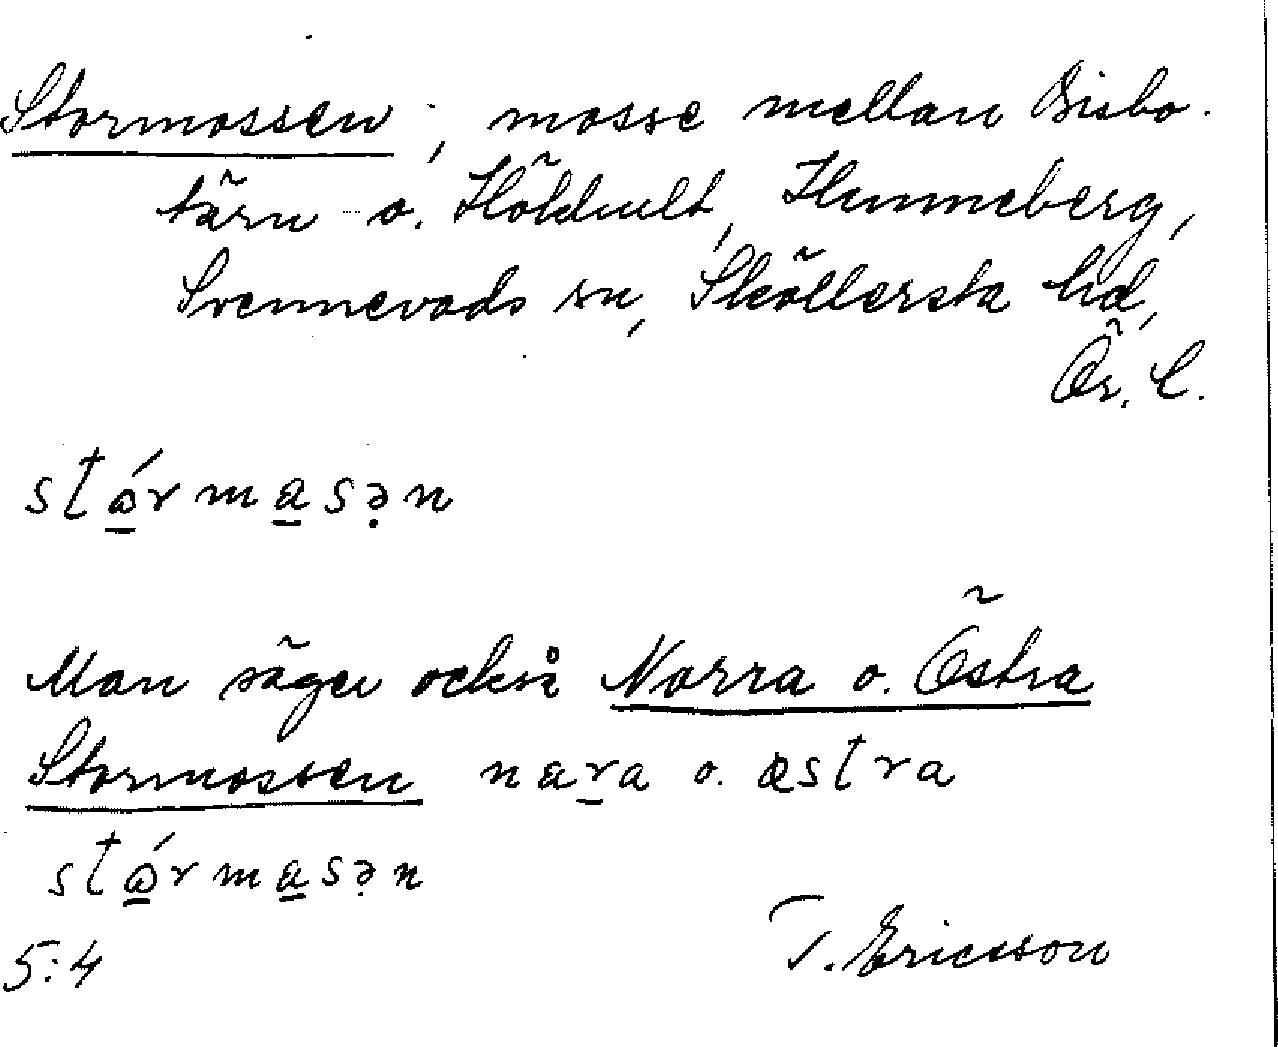 Stormossen, mosse mellan Bisbo-
tärn o. Hökhult, Hunneberg,
Svennevads sn, Sköllersta hd,
Ör. l.
stǫ́rmasən
Man säger också Norra o. Östra
Stormossen nara o. œstra
stǫ́rmasən
5:4 T. Ericsson